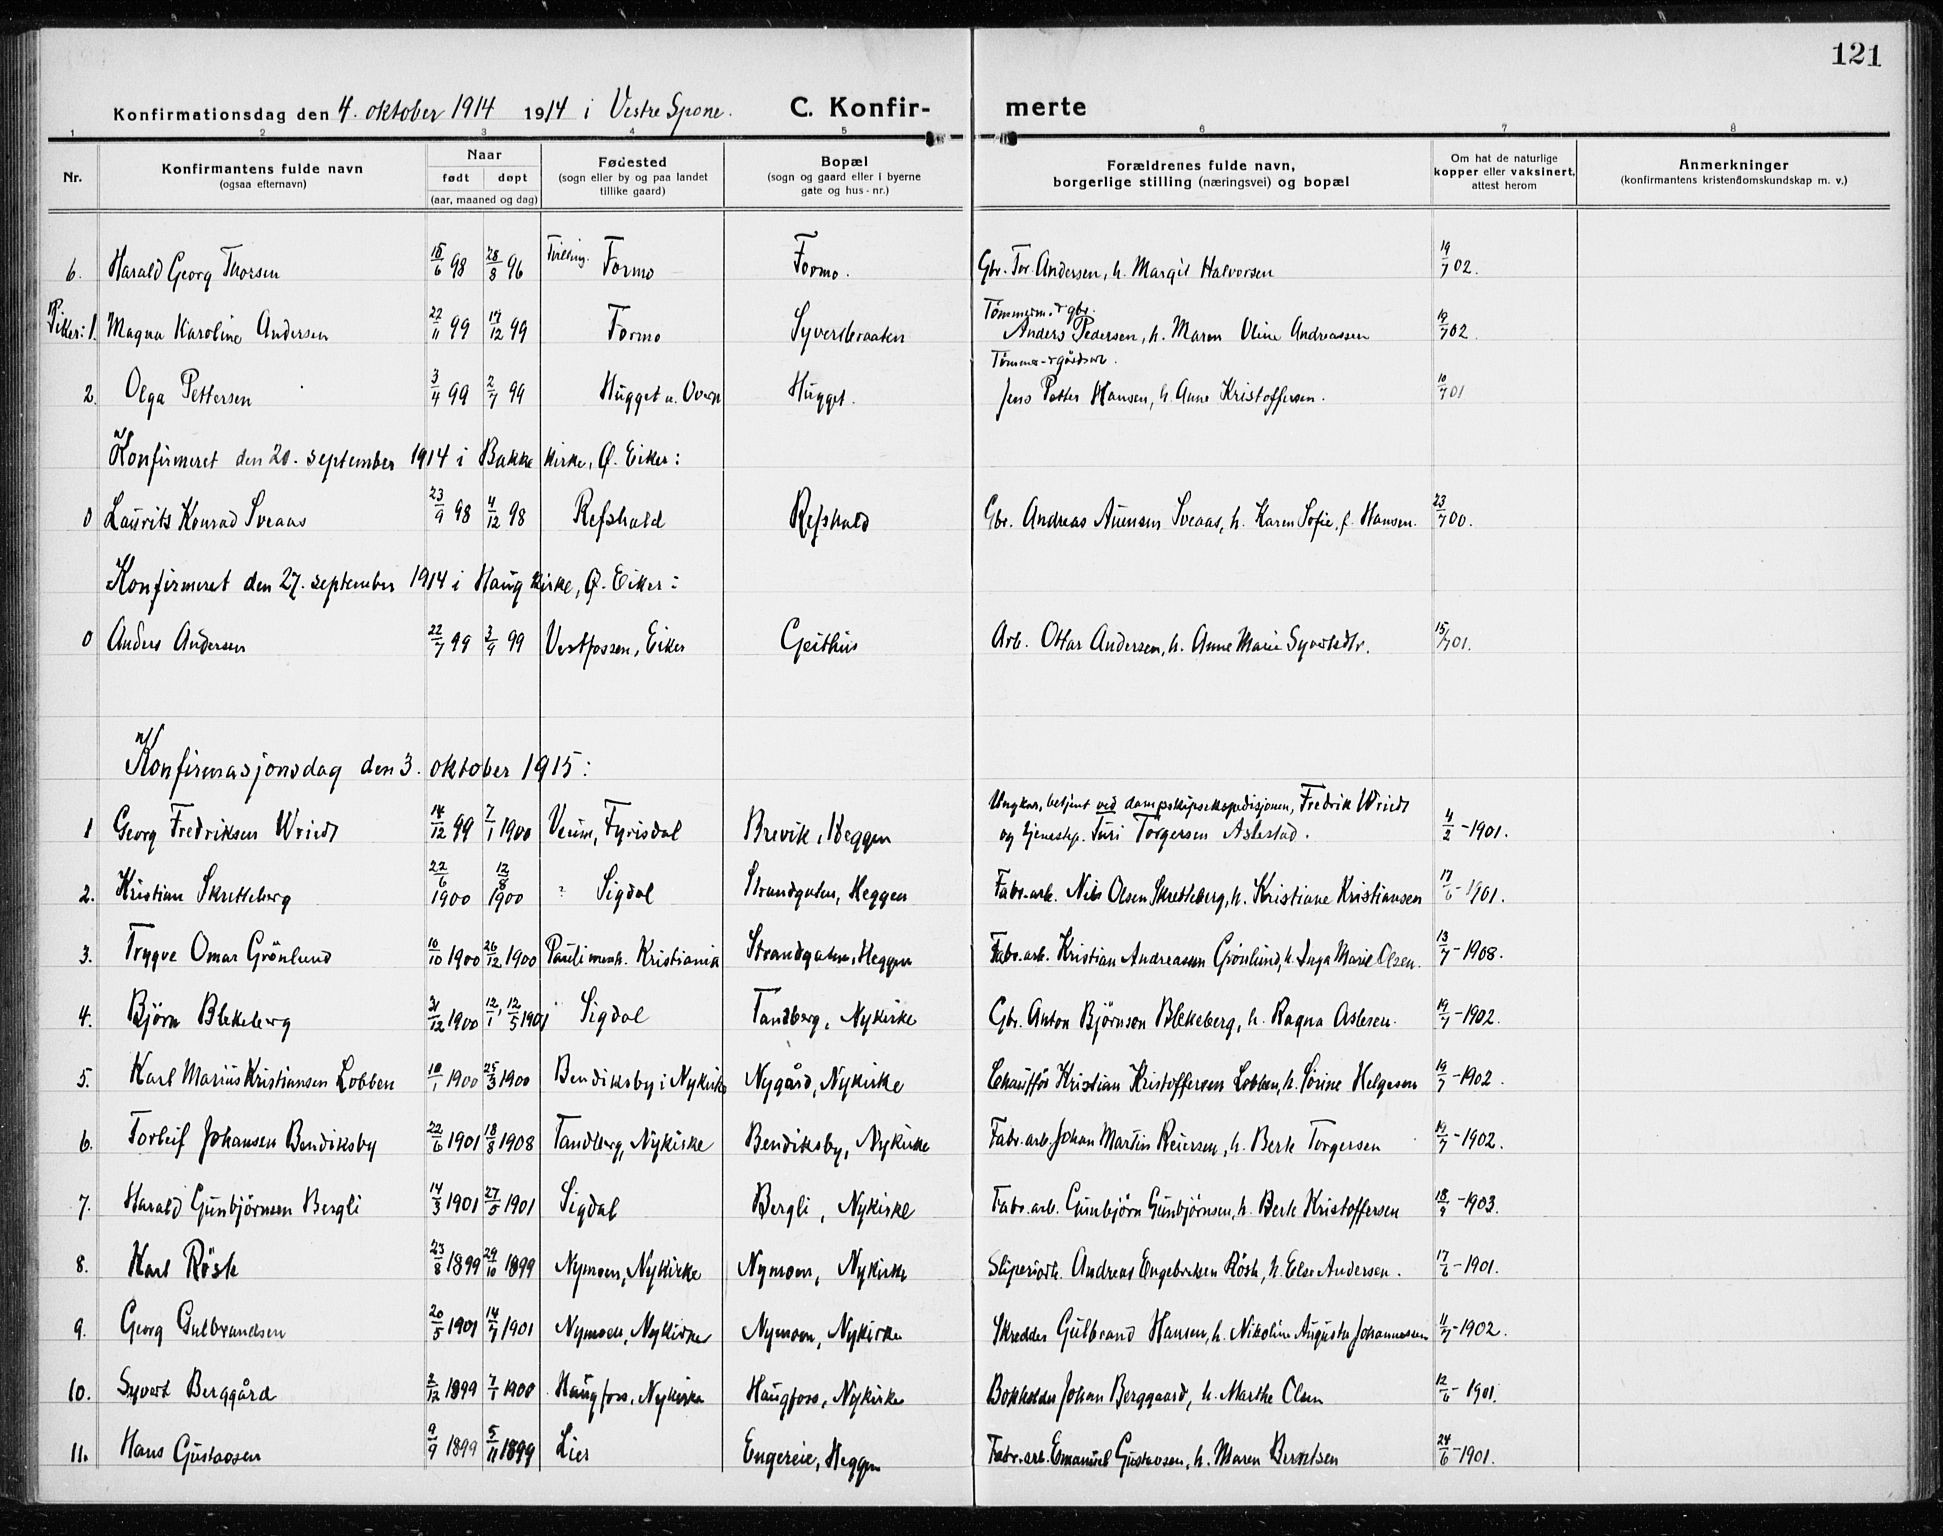 121
Konfirmationsdag den 4. oktober 1914 1914 i Vestre Spone. C. Konfir- merte
1 2 3 4 5 6 7 8
Nr. Konfirmantens fulde navn (ogsaa efternavn) Naar født døpt (aar, maaned og dag) Fødested (sogn eller by og paa landet tillike gaard) Bopæl (sogn og gaard eller i byerne gate og hus-nr.) Forældrenes fulde navn, borgerlige stilling (næringsvei) og bopæl Om hat de naturlige kopper eller vaksinert, attest herom Anmerkninger (konfirmantens kristendomskundskap m. v.)
6. Harald Georg Thorsen 18/6 98 28/8 96 Tvilling. Formo Formo. Gbr. Tor Andersen, h. Margit Halvorsen 19/7 02.
Piker: 1. Magna Karoline Andersen 22/11 99 17/12 99 Formo Syvertbraaten Tømmerm. & gbr. Anders Pedersen, h. Maren Oline Andreassen 19/7 02.
2. Olga Pettersen 3/4 99 2/7 99 Hugget u. Overn Hugget. Jens Petter Hansen, h. Anne Kristoffersen. 10/7 01
Konfirmeret den 20. september 1914 i Bakke kirke, Ø. Eiker:
0 Laurits Konrad Sveaas 23/9 98 4/12 98 Refshald Refshald Gbr. Andreas Auensen Sveaas, h. Karen Sofie, f. Hansen. 23/7 00.
Konfirmeret den 27. september 1914 i Haug kirke, Ø. Eiker:
0 Anders Andersen 22/7 99 3/9 99 Vestfossen, Eiker Geithus Arb. Ottar Andersen, h. Anne Marie Syvertsdtr. 15/7 01.
Konfirmasjonsdag den 3. oktober 1915:
1 Georg Fredriksen Wriedt 14/12 99 7/1 1900 Veum, Fyrisdal Brevik, Heggen Ungkar, betjent ved dampskipsekspedisjonen, Fredrik Wriedt og tjenestep. Turi Torgersen Aslestad. 4/2 - 1901.
2. Kristian Skretteberg 22/6 1900 12/8 1900 Sigdal Strandgaten, Heggen Fabr.arb. Nils Olsen Skretteberg, h. Kristiane Kristiansen 17/6 - 1901.
3. Trygve Omar Grönlund 10/10 1900 26/12 1900 Pauli menh. Kristiania Strandgaten, Heggen Fabr.arb. Kristian Andreasen Grönlund, h. Inga Marie Olsen. 13/7 - 1908.
4. Björn Blekeberg 31/12 1900 12/1, 12/5 1901 Sigdal Tandberg, Nykirke Gbr. Anton Björnson Blekeberg, h. Ragna Aslesen. 19/7 - 1902.
5. Karl Marius Kristiansen Lobben 10/1 1900 25/3 1900 Bendiksby i Nykirke Nygård, Nykirke Chaufför Kristian Kristoffersen Lobben, h. Sörine Helgesen 19/7 - 1902.
6. Torleif Johansen Bendiksby 22/6 1901 18/8 1908 Tandberg, Nykirke Bendiksby, Nykirke Fabr.arb. Johan Martin Reiersen, h. Berte Torgersen 19/7 - 1902.
7. Harald Gunbjörnsen Bergli 14/3 1901 27/5 1901 Sigdal Bergli, Nykirke Fabr.arb. Gunbjörn Gunbjörnsen, h. Berte Kristoffersen 18/9 - 1903.
8. Karl Röste 23/8 1899 29/10 1899 Nymoen, Nykirke Nymoen, Nykirke Sliperiarb. Andreas Engebretsen Röste, h. Else Andersen. 17/6 - 1901.
9. Georg Gulbrandsen 20/5 1901 14/7 1901 Nymoen, Nykirke Nymoen, Nykirke Skredder Gulbrand Hansen, h. Nikoline Augusta Johannessen 11/7 - 1902.
10. Syvert Berggård 2/12 1899 7/1 1900 Haugfoss, Nykirke Haugfoss, Nykirke Bokholder Johan Berggaard, h. Marthe Olsen 12/6 - 1901.
11. Hans Gustavsen 9/9 1899 5/11 1899 Lier Engereie, Heggen Fabr.arb. Emanuel Gustavsen, h. Maren Berntsen 24/6 - 1901.